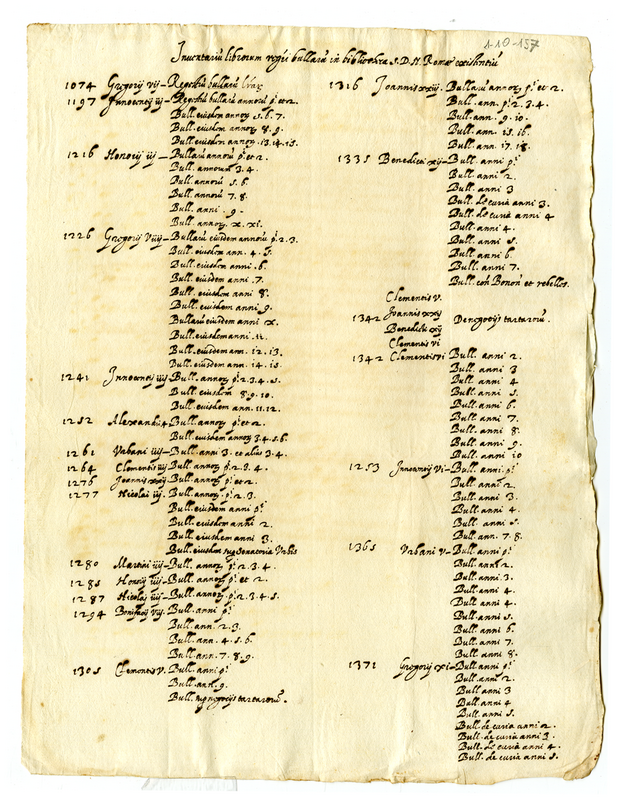 1-10-157
Inventariũ librorum regri bullarũ in bibliotheca S.D.N. Romae existentiũ
1074 Gregorij vij - Regestrũ bullarũ
1197 Innocentij iij - Regestrũ bullarũ annorũ p.i et 2.
Bull. eiusdem annorų 5. 6. 7.
Bull. eiusdem annorų 8. 9.
Bull. eiusdem annorų .13. 14. 15.
1216 Honorij iij - Bullarũ annorũ p.i et 2.
Bull. annorum 3. 4.
Bull. annorũ 5. 6.
Bull. annorũ 7. 8.
Bull. anni . 9 .
Bull. annorų .x. xi.
1226 Gregorij Viiij - Bullarũ eiusdem annorũ p.i 2. 3.
Bull. eiusdem ann. 4. 5.
Bull. eiusdem anni .6.
Bull. eiusdem anni .7.
Bull. eiusdem anni 8.
Bull. eiusdem anni 9.
Bullarũ eiusdem anni .x.
Bull. eiusdem anni .11.
Bull. eiusdem ann. 12. 13.
Bull. eiusdem ann. 14. 15.
1241 Innocentij iiij - Bull. annorų p.i 2. 3. 4. 5.
Bull. eiusdem 8. 9. 10.
Bull. eiusdem ann. 11. 12.
1252 Alexandri 4 - Bull. annorų p.i et 2.
Bull. eiusdem annorų 3. 4. 5. 6.
1261 Vrbani iiij - Bull. anni 3. et alius 3. 4.
1264 Clementis iiij - Bull. annorų p.i 2. 3. 4.
1276 Joannis xxij - Bull. annorų p.i et 2.
1277 Nicolai iij - Bull. annorų p.i 2. 3.
Bull. eiusdem anni p.i
Bull. eiusdem anni 2.
Bull. eiusdem anni 3.
Bull. eiusdem sup senatoria Vrbis
1280 Martini iiij - Bull. annorų p.i 2. 3. 4.
1285 Honorij iiij - Bull. annorų p.i et 2.
1287 Nicolai iiij - Bull. annorų p.i 2. 3. 4. 5.
1294 Bonifacij viij - Bull. anni p.i
Bull. ann. 2. 3.
Bull. ann. 4. 5. 6.
Bull. ann. 7. 8. 9.
1305 Clementis V. Bull. anni p.i
Bull. ann. 9.
Bull. negocijs tartarorũ.
1316 Joannis xxij. Bullarũ annorų p.i et 2.
Bull. ann. p.i 2. 3. 4.
Bull. ann. 9. 10.
Bull. ann. 15. 16.
Bull. ann. 17. 18.
1335 Benedicti xij - Bull. anni p.i
Bull. anni 2.
Bull. anni 3
Bull. de curia anni 3.
Bull. de curia anni 4
Bull. anni 4.
Bull. anni 5.
Bull. anni 6.
Bull. anni 7.
Bull. cõt Bonoñ et rebelles.
Clementis V.
1342 Joannis xxij De negocijs tartarorũ.
Benedicti xij
Clementis vi
1342 Clementis vi Bull. anni 2.
Bull. anni 3
Bull. anni 4
Bull. anni 5
Bull. anni 6.
Bull. anni 7.
Bull. anni 8.
Bull. anni 9.
Bull. anni 10
1253 Innocentij vi - Bull. anni p.i
Bull. anni 2.
Bull. anni 3.
Bull. anni 4.
Bull. anni 5.
Bull. ann. 7. 8.
1365 Vrbani V - Bull. anni p.i
Bull. anni 2.
Bull. anni .3.
Bull. anni 4.
Bull. anni 4.
Bull. anni 5.
Bull. anni 6.
Bull. anni 7.
Bull. anni 8.
1371 Gregorij xi - Bull. anni p.i
Bull. anni 2.
Bull. anni 3
Bull. anni 4
Bull. anni 5.
Bull. de curia anni 2.
Bull. de curia anni 3.
Bull. de curia anni 4.
Bull. de curia anni 5.